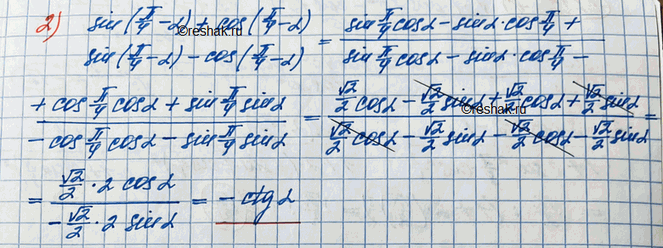 2) (sin(π/4-α) + cos(π/4-α))/(sin(π/4-α) - cos(π/4-α)) = (sin π/4 cosα - sinα·cos π/4 +)/(sin π/4 cosα - sinα·cos π/4 -)
©reshak.ru
(+ cos π/4 cosα + sin π/4 sinα)/(- cos π/4 cosα - sin π/4 sinα) = (√2/2 cosα - √2/2 sinα + √2/2 cosα + √2/2 sinα)/(√2/2 cosα - √2/2 sinα - √2/2 cosα - √2/2 sinα) =
©reshak.ru
= (√2/2 · 2 cosα)/(-√2/2 · 2 sinα) = - ctgα